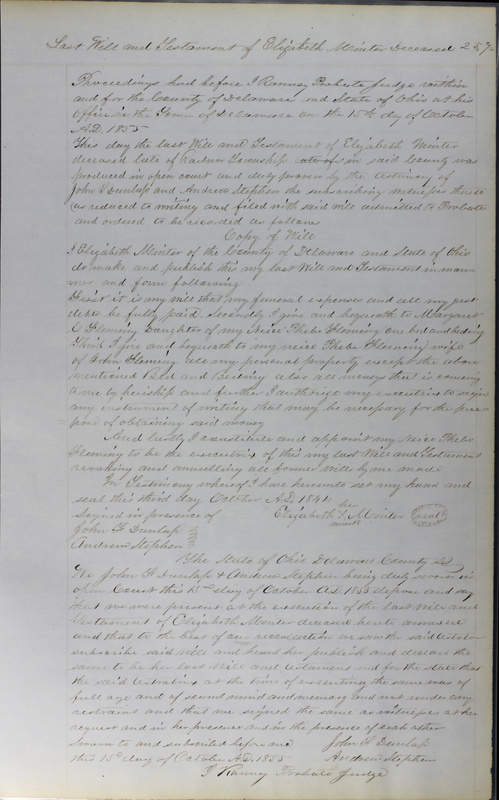 Last Will and Testament of Elizabeth Minter Deceased 257
Proceedings had before T Ranney Probate Judge within
and for the County of Delaware and State of Ohio at his
office in the Town of Delaware on the 15th day of October
A.D. 1855
This day the last Will and Testament of Elizabeth Minter
deceased late of Township in said County was
produced in open court and duly proven by the testimony of
John F Dunlap and Andrew Stephen the subscribing witnesses thereto
as reduced to writing and filed with said will admitted to Probate
and ordered to be recorded as follows
Copy of Will
I Elizabeth Minter of the County of Delaware and State of Ohio
do make and publish this my last Will and Testament in man-
ner and form following
First it is my will that my funeral expenses and all my just
debts be fully paid. Secondly I give and bequeath to Margaret
C Fleming Daughter of my Neice Phebe Fleming one bed and beding
Third I give and bequeath to my neice Phebe Fleming wife
of John Fleming all my personal property except the above
mentioned Bed and Beding also all money that is comeing
to me by and further I authorize my executrix to sign
any instrument of writing that may be necessary for the pur-
pose of obtaining said money
And lastly I constitute and appoint my Neice Phebe
Fleming to be the executrix of this my last Will and Testament
revoking and annulling all former wills by me made
In Testimony whereof I have hereunto set my hand and
seal this third day October A.D. 1841
Signed in presence of Elizabeth her mark Minter seal
John F Dunlap
Andrew Stephen
The State of Ohio Delaware County ss
We John F Dunlap & Andrew Stephen being duly sworn in
open Court this 15th day of October A.D. 1855 depose and say
that we were present at the execution of the last Will and
Testament of Elizabeth Minter deceased hereto annexed
and that to the best of our recollection we saw the said testator
subscribe said Will and heard her publish and declare the
same to be her last Will and testament and further state that
the said Testatrix at the time of executing the same was of
full age and of sound mind and memory and not under any
restraint and that we signed the same as witnesses at her
request and in her presence and in the presence of each other
Sworn to and subscribed before me John F Dunlap
this 15th day of October A.D. 1855 Andrew Stephen
T Ranney Probate Judge